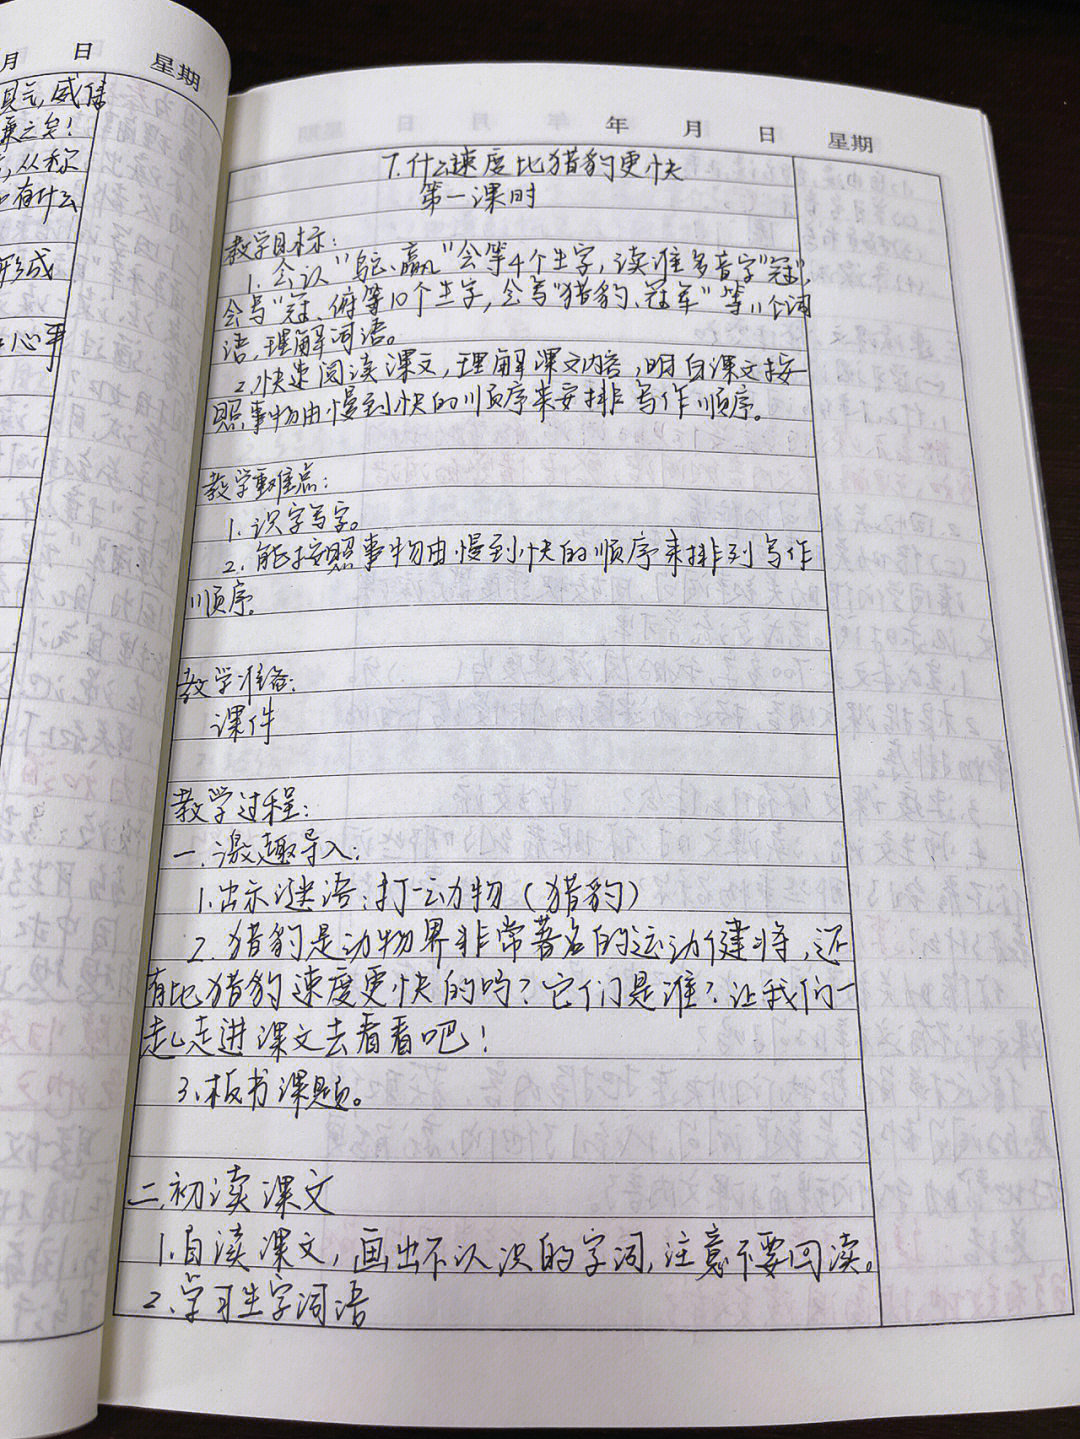 月 日 星期
年 月 日 星期
7.什么速度比猎豹更快
第一课时
教学目标:
1.会认"鸵、赢"会等4个生字,读准多音字"冠",
会写"冠、俯等10个生字,会写"猎豹、冠军"等11个词
语,理解词语。
2.快速阅读课文,理解课文内容,明白课文按
照事物由慢到快的顺序来安排写作顺序。
教学重难点:
1.识字写字。
2.能按照事物由慢到快的顺序来排列写作
顺序。
教学准备:
课件
教学过程:
一.激趣导入:
1.出示谜语:打一动物(猎豹)
2.猎豹是动物界非常著名的运动健将,还
有比猎豹速度更快的吗?它们是谁?让我们一
起走进课文去看看吧!
3.板书课题。
二.初读课文
1.自读课文,画出不认识的字词,注意不要回读。
2.学习生字词语